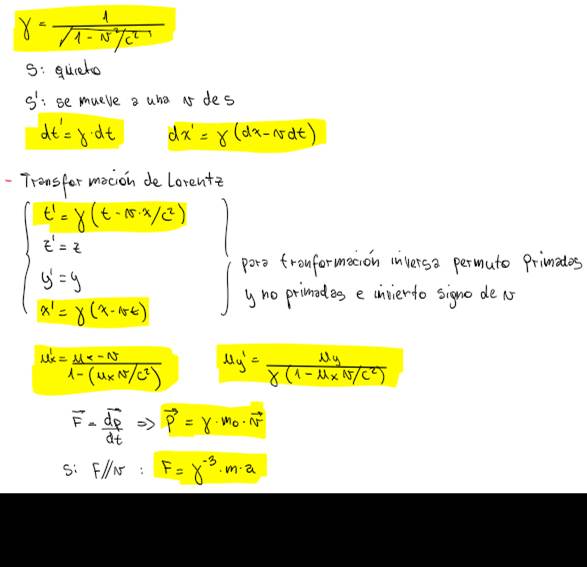 γ = 1/√(1 - v²/c²)
S: quieto
S': se mueve a una v de s
dt' = γ·dt    dx' = γ(dx - vdt)
- Transformación de Lorentz
t' = γ(t - v·x/c²)
z' = z
y' = y
x' = γ(x - vt)
para tranformación inversa permuto primadas
y no primadas e invierto signo de v
ux' = ux - v / 1 - (ux v/c²)    uy' = uy / γ(1 - ux v/c²)
F = dp/dt => P = γ·m₀·v
Si F//v : F = γ⁻³·m·a